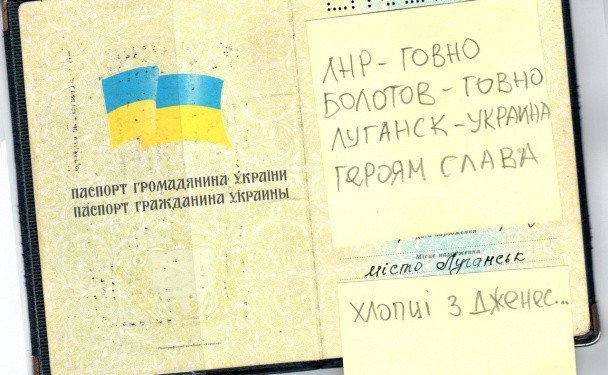 ПАСПОРТ ГРОМАДЯНИНА УКРАЇНИ
ПАСПОРТ ГРАЖДАНИНА УКРАИНЫ
ЛНР - ГОВНО
БОЛОТОВ - ГОВНО
ЛУГАНСК - УКРАИНА
ГЕРОЯМ СЛАВА
Місце народження
місто Луганськ
ХЛОПЦІ З ДЖЕНЕС...